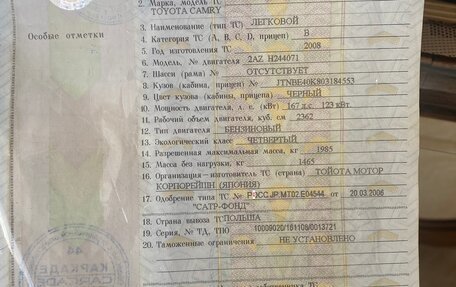 2. Марка, модель ТС
TOYOTA CAMRY
Особые отметки
3. Наименование (тип ТС) ЛЕГКОВОЙ
4. Категория ТС (A, B, C, D, прицеп) B
5. Год изготовления ТС 2008
6. Модель, № двигателя 2AZ H244071
7. Шасси (рама) № ОТСУТСТВУЕТ
8. Кузов (кабина, прицеп) № JTNBE40K803184553
9. Цвет кузова (кабины, прицепа) ЧЕРНЫЙ
10. Мощность двигателя, л. с. (кВт) 167 л.с. 123 кВт
11. Рабочий объем двигателя, куб. см 2362
12. Тип двигателя БЕНЗИНОВЫЙ
13. Экологический класс ЧЕТВЕРТЫЙ
14. Разрешенная максимальная масса, кг 1985
15. Масса без нагрузки, кг 1465
16. Организация—изготовитель ТС (страна) ТОЙОТА МОТОР
КОРПОРЕЙШН (ЯПОНИЯ)
17. Одобрение типа ТС № РОСС JP.МТ02.Е04544 от 20.03.2006
"САТР-ФОНД"
18. Страна вывоза ТС ПОЛЬША
19. Серия, № ТД, ТПО 10009020/181108/0013721
20. Таможенные ограничения НЕ УСТАНОВЛЕНО
44
КАРКАДЕ
CARCADE